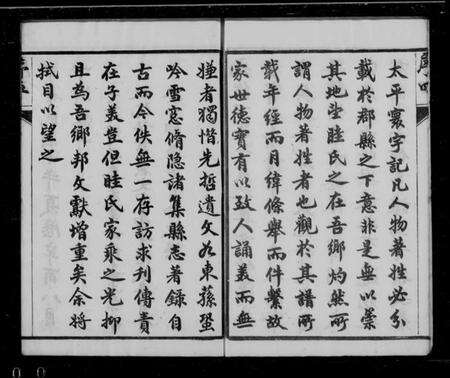 太平寰宇記凡人物著姓必分
載於郡縣之下意非是無以崇
其地望眭氏之在吾鄉灼然所
謂人物著姓者也觀於其譜所
載年經而月緯條舉而件繫故
家世德實有以致人誦美而無
者獨惜先哲遺文如東蓀蛩
吟雪窓脩隐諸集縣志著錄自
古而今佚無一存訪求刊傳責
在子美豈但眭氏家乘之光抑
且為吾鄉邦文獻增重矣余將
拭目以望之